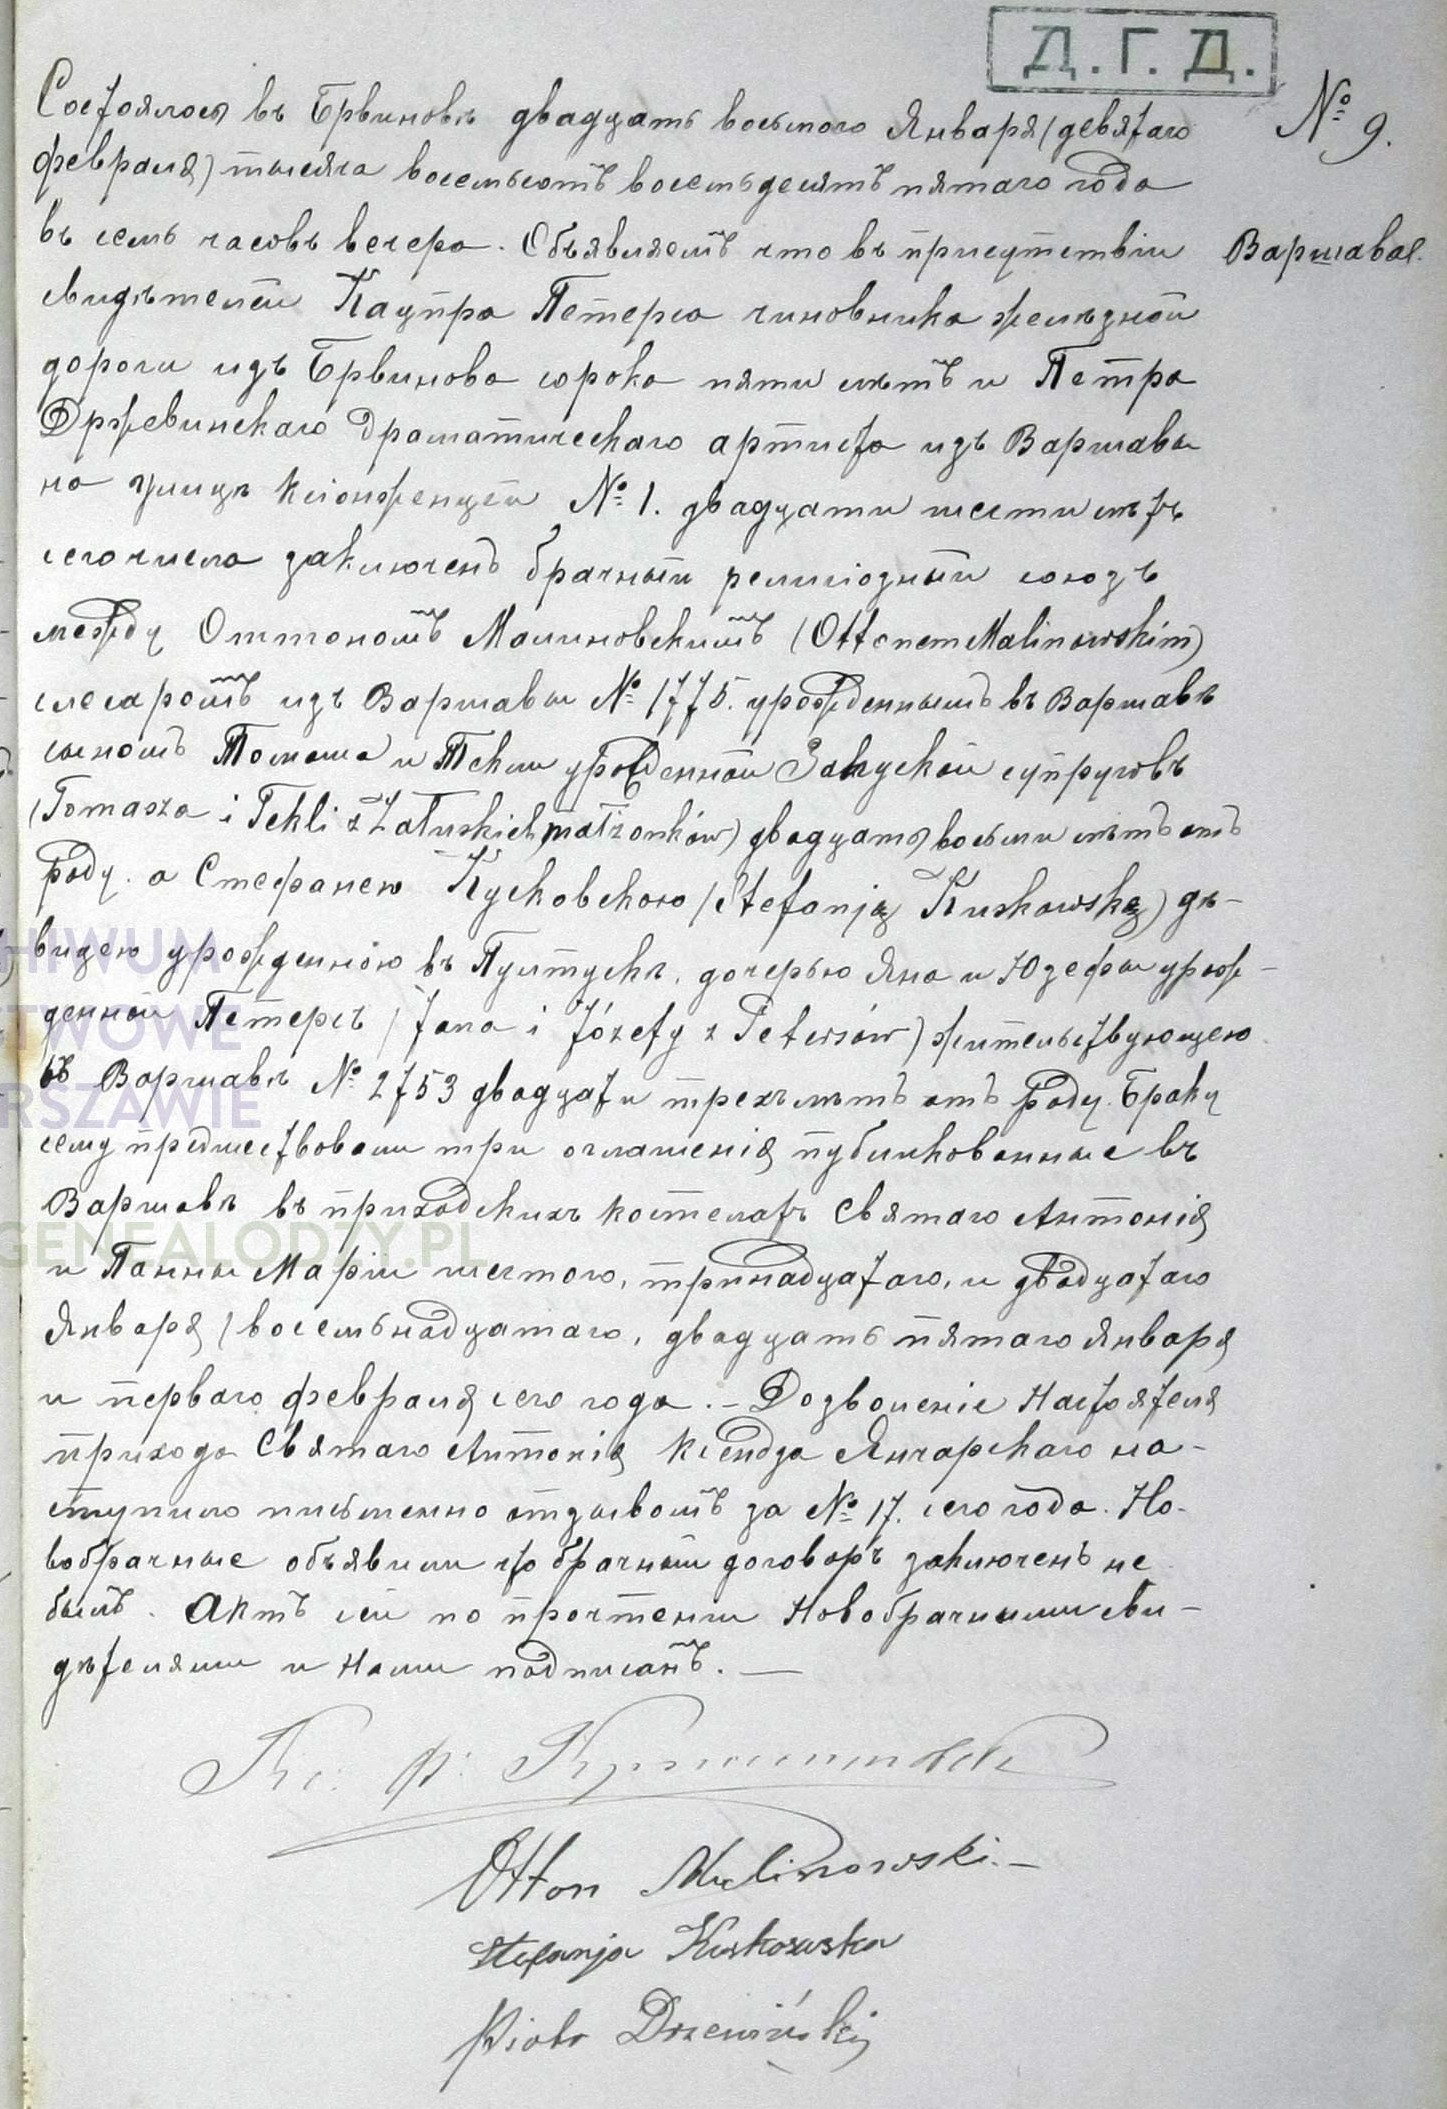 Д.Г.Д.
№ 9.
Варшава.
Состоялось въ Брвиновѣ двадцать восьмого Января (девятаго
февраля) тысяча восемьсотъ восемьдесятъ пятаго года
въ семь часовъ вечера. Объявляемъ что въ присутствіи
свидѣтелей Кацпра Петерса чиновника желѣзной
дороги изъ Брвинова сорока пяти лѣтъ и Петра
Држевинскаго драматическаго артиста изъ Варшавы
на улицѣ Ксіонженцей № 1. двадцати шести лѣтъ
сего числа заключенъ брачный религіозный союзъ
между Оттономъ Малиновскимъ (Ottonem Malinowskim)
слесаромъ изъ Варшавы № 1775. урожденнымъ въ Варшавѣ
сыномъ Томаша и Текли урожденной Залуской супруговъ
(Tomasza i Tekli z Załuskich małżonków) двадцать восьми лѣтъ отъ
роду. а Стефанею Кусковскою (Stefanją Kuskowską) дѣ-
вицею урожденною въ Пултускѣ, дочерью Яна и Юзефы урож-
денной Петерсъ (Jana i Józefy z Petersów) жительствующею
въ Варшавѣ № 2753 двадцати трехъ лѣтъ отъ роду. Браку
сему предшествовали три оглашенія публикованные въ
Варшавѣ въ приходскихъ костелахъ Святаго Антонія
и Панны Маріи шестого, тринадцатаго, и двадцатаго
Января (восемьнадцатаго, двадцать пятаго Января
и перваго февраля сего года. – Дозволеніе Настоятеля
прихода Святаго Антонія Ксендза Янчарскаго на-
ступило письменно отзывомъ за № 17. сего года. Но-
вобрачные объявили что брачный договоръ заключенъ не
былъ. Актъ сей по прочтеніи Новобрачными сви-
дѣтелями и Нами подписанъ. —
Кс. Ф.
Otton Malinowski. –
Stefanja Kuskowska
Piotr Drzewiński
ARCHIWUM
PAŃSTWOWE
WARSZAWIE
GENEALODZY.PL